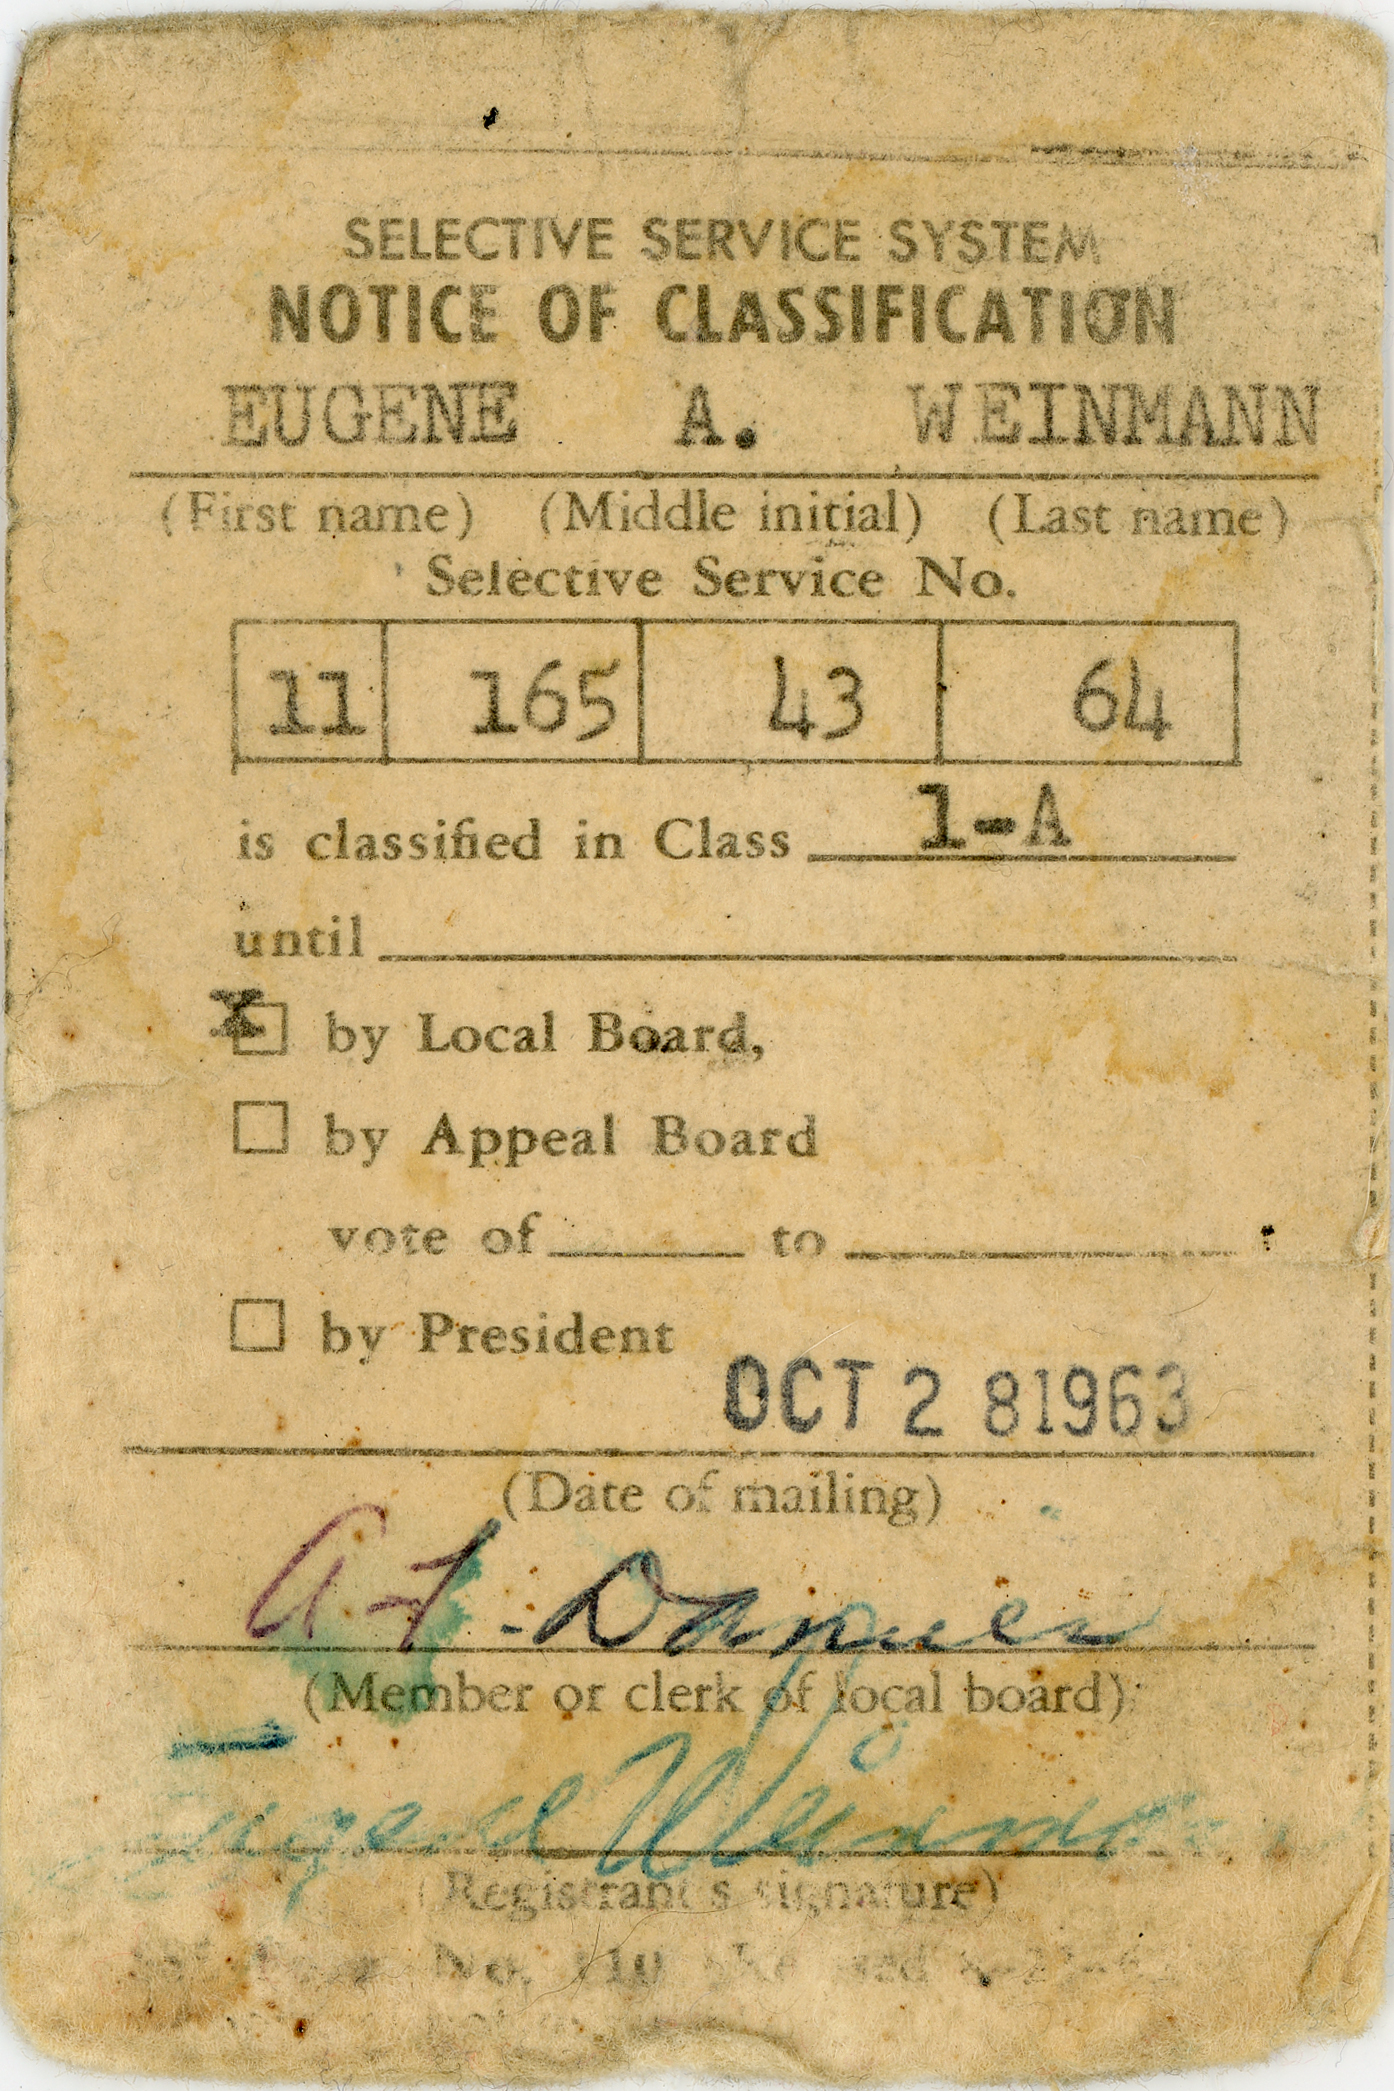 SELECTIVE SERVICE SYSTEM
NOTICE OF CLASSIFICATION
EUGENE A. WEINMANN
(First name) (Middle initial) (Last name)
Selective Service No.
11 165 43 64
is classified in Class 1-A
until
X by Local Board,
by Appeal Board
vote of to
by President
OCT 2 8 1963
(Date of mailing)
(Member or clerk of local board)
Eugene Weinmann
(Registrant's signature)
No. 110